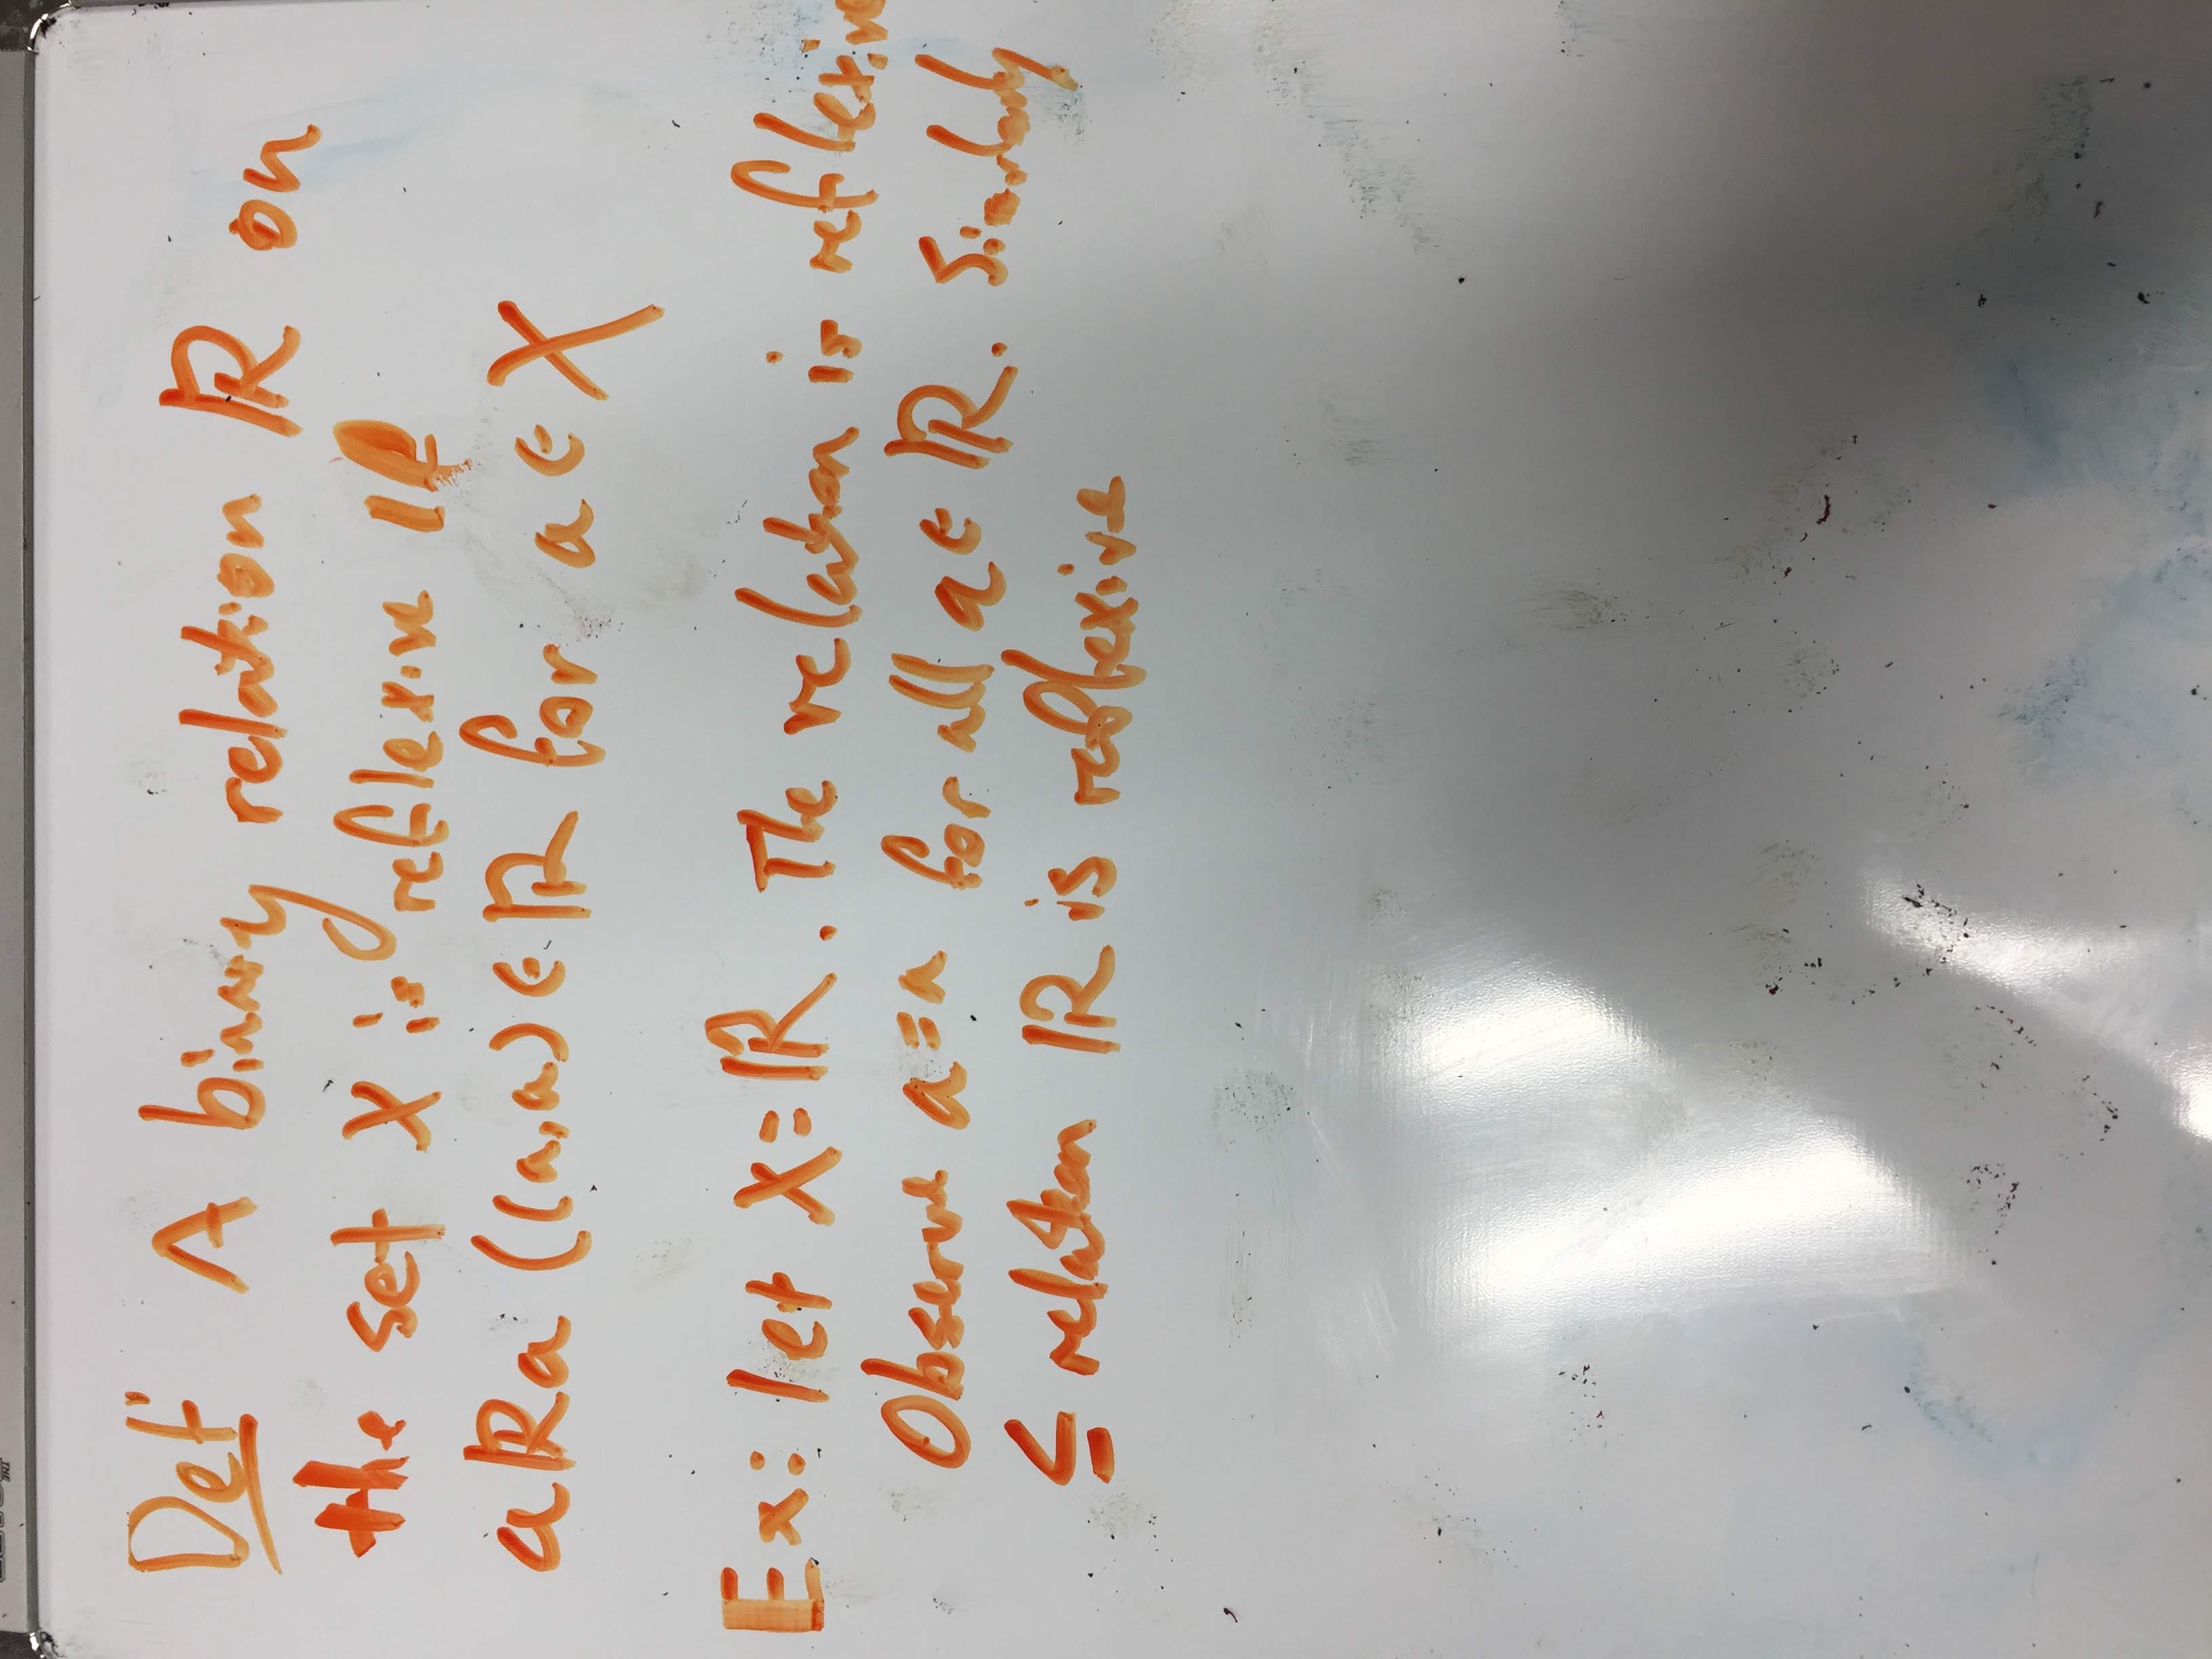 Def' A binary relation ℝ on
the set X is reflexive If
aRa ((a,a) ∈ ℝ for a ∈ X
Ex: let X=ℝ. The relation is reflexive
Observe a=a for all a ∈ ℝ. Similarly
≤ relation ℝ is reflexive